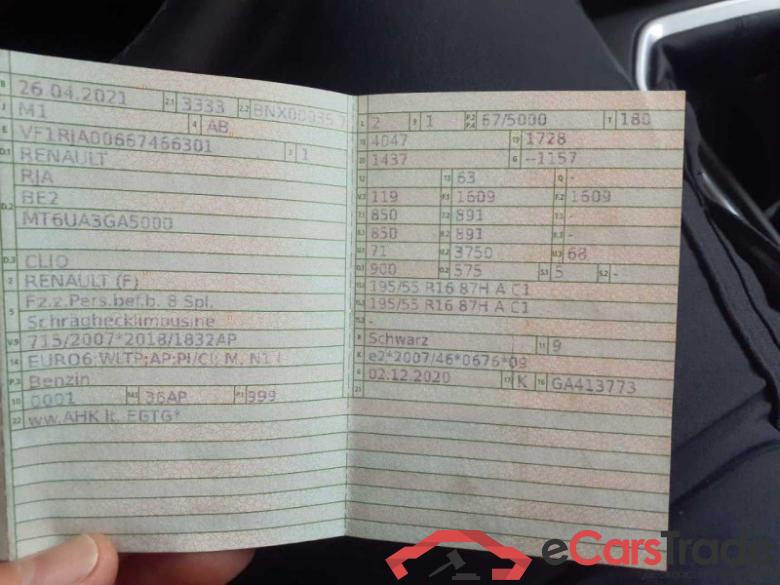 B 26.04.2021 2.1 3333 2.2 BNX00035 7
J M1 4 AB
E VF1RJA00667466301 3 1
D.1 RENAULT
RJA
D.2 BE2
MT6UA3GA5000
D.3 CLIO
2 RENAULT (F)
5 Fz.z.Pers.bef.b. 8 Spl.
Schräghecklimousine
V.9 715/2007*2018/1832AP
14 EURO6;WLTP;AP;PI/CI; M, N1 I
P.3 Benzin
10 0001 14.1 36AP P.1 999
22 ww.AHK lt. EGTG*
L 2 9 1 P.2 P.4 67/5000 T 180
18 4047 19 1728
20 1437 G --1157
12 - 13 63 Q -
V.7 119 F.1 1609 F.2 1609
7.1 850 7.2 891 7.3 -
8.1 850 8.2 891 8.3 -
U.1 71 U.2 3750 U.3 68
O.1 900 O.2 575 S.1 5 S.2 -
15.1 195/55 R16 87H A C1
15.2 195/55 R16 87H A C1
15.3 -
R Schwarz 11 9
K e2*2007/46*0676*09
6 02.12.2020 17 K 16 GA413773
21
eCarsTrade